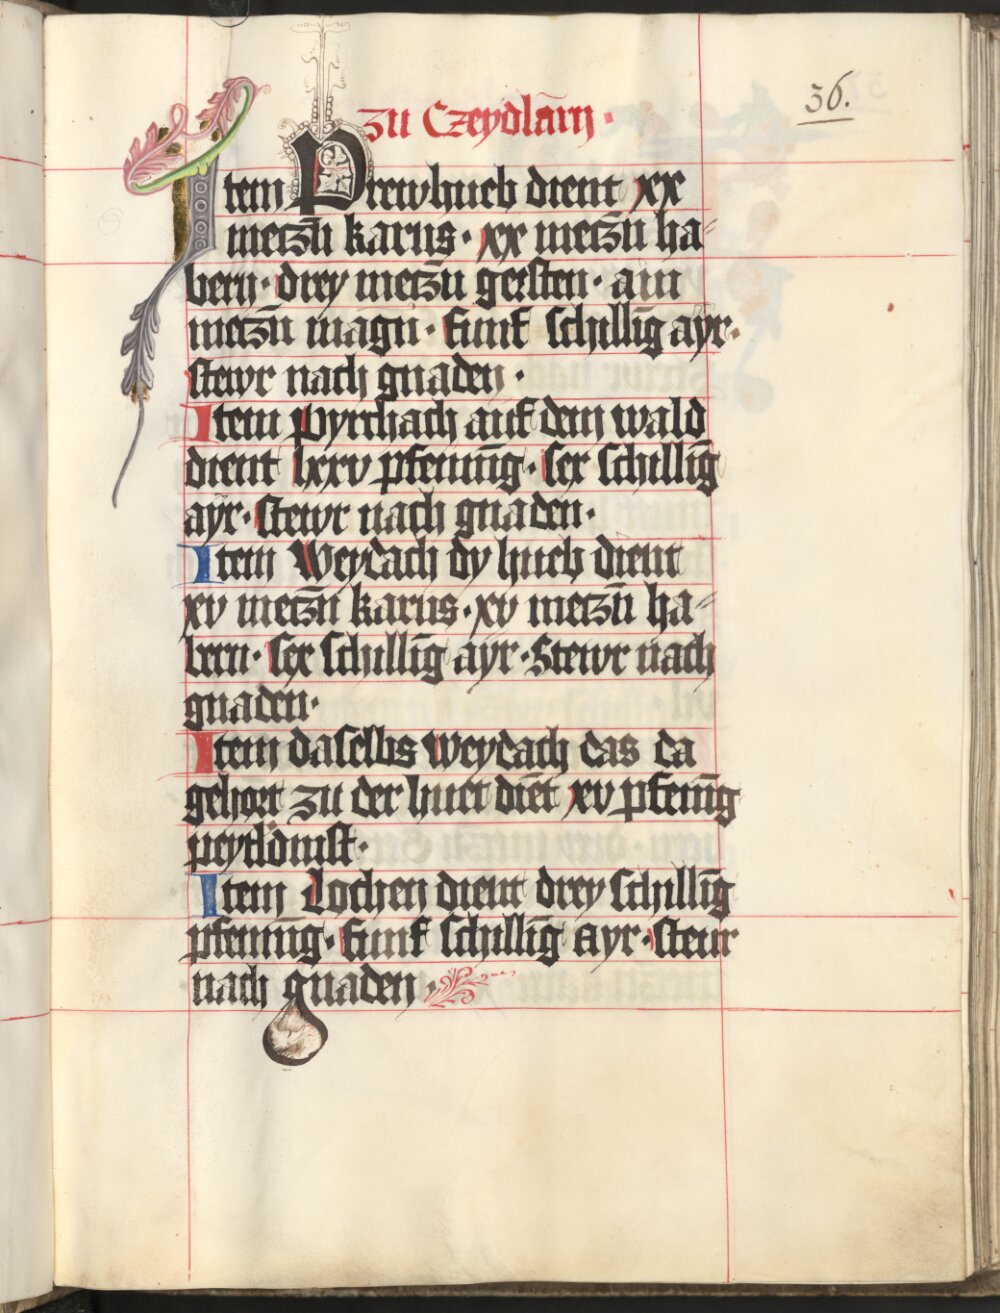 36.
zu Czeydlārn ·
Item Prewhueb dient xx
meczn̄ karns · xx meczn̄ ha⸗
bern · drey meczn̄ gersten · ain
meczn̄ magn · funf schilling ayr ·
stewr nach gnaden ·
Item Pyrchach auf dem wald
dient lxxv pfenning · sex schillīg
ayr · stewr nach gnaden ·
Item Weydach dy hueb dient
xv meczn̄ karns · xv meczn̄ ha⸗
bern · sex schillīg ayr · Stewr nach
gnaden ·
Item daselbs Weydach das da
gehort zu der huet diēt xv pfenīg
peytldinst ·
Item Lochen dient drey schillīg
pfennīg · funf schillīg ayr · steur
nach gnaden ·